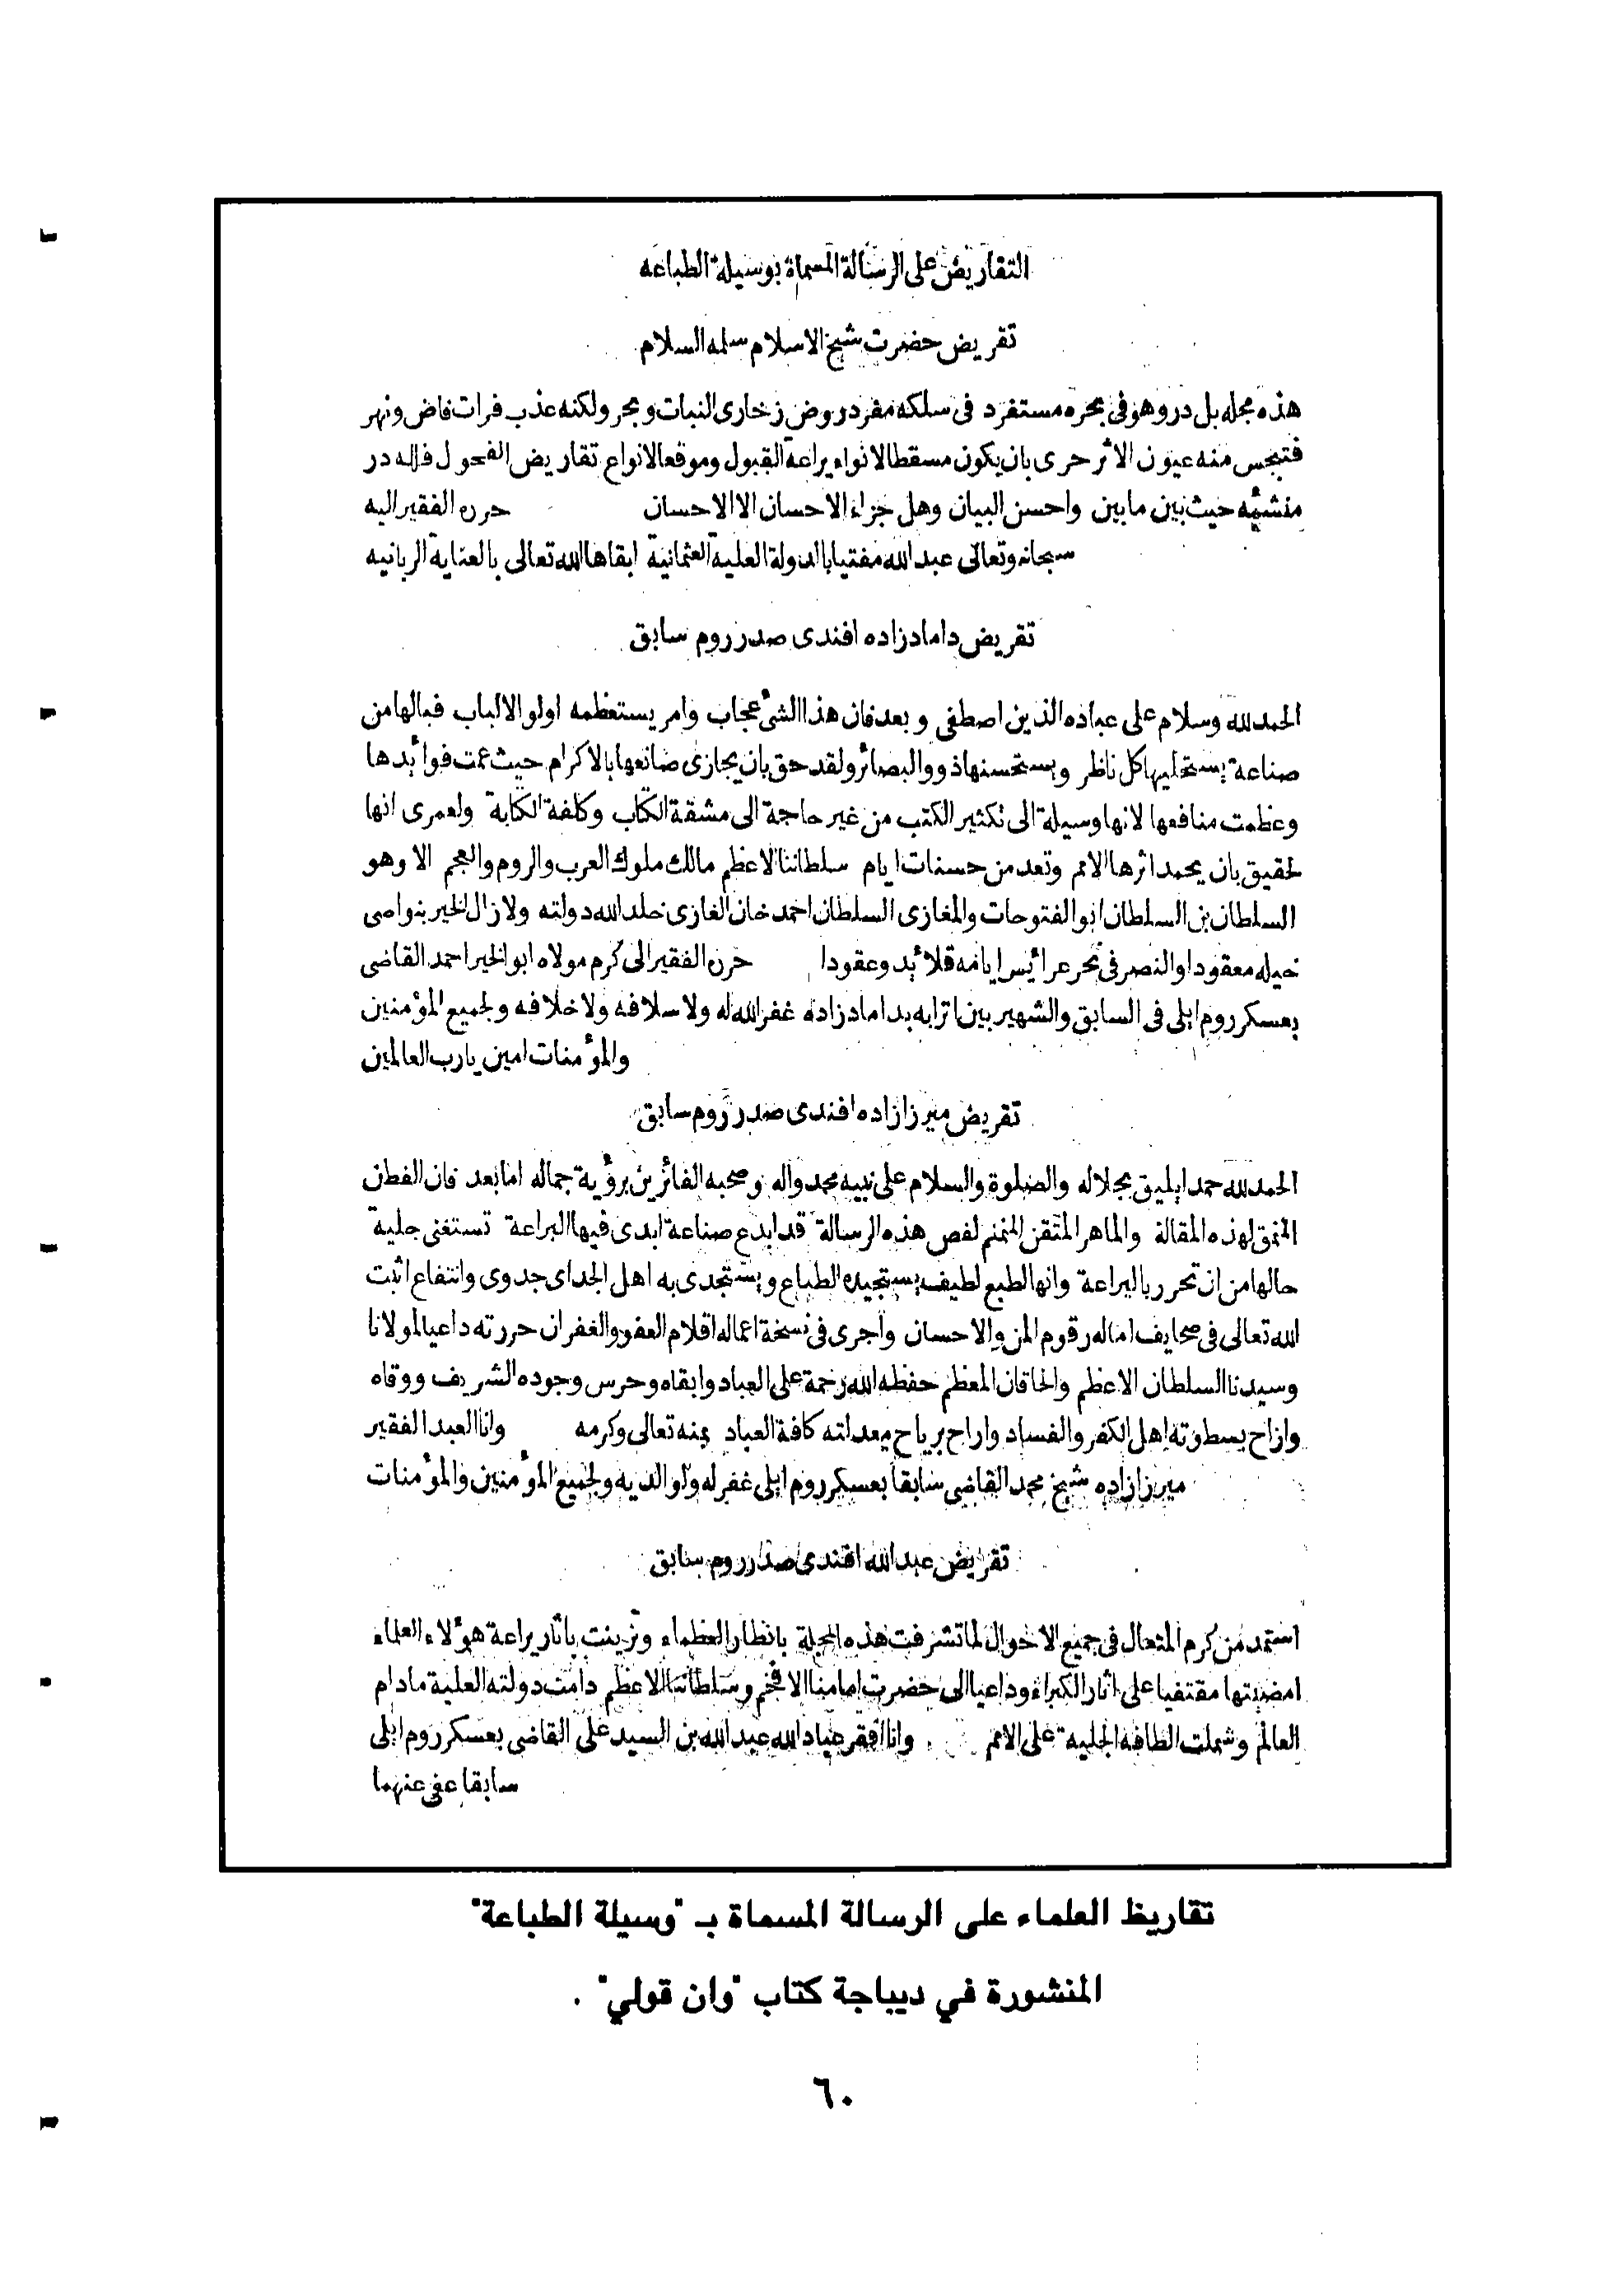 التقاريض على الرسالة المسماة بوسيلة الطباعه
تقريض حضرت شيخ الاسلام سلمه السلام
هذه مجله بل در وهو فى بحره مستفرد فى سلكه مفرد روض زخارى النبات وبحر ولكنه عذب فرات فاض ونهر
فتبجس منه عيون الاثر حرى بان يكون مسقطا لانواء يراعة القبول وموقعا لانواع تقاريض الفحول فلله در
منشئه حيث بين ما بين واحسن البيان وهل جزاء الاحسان الا الاحسان حرره الفقير اليه
سبحانه وتعالى عبد الله مفتيا بالدولة العلية العثمانية ابقاها الله تعالى بالعناية الربانيه
تقريض داماد زاده افندى صدر روم سابق
الحمد لله وسلام على عباده الذين اصطفى وبعد فان هذا الشئ عجاب وامر يستعظمه اولو الالباب فيالها من
صناعة يستحليها كل ناظر ويستحسنها ذوو البصائر ولقد حق بان يجازى صانعها بالاكرام حيث عمت فوائدها
وعظمت منافعها لانها وسيلة الى تكثير الكتب من غير حاجة الى مشقة الكتاب وكلفة الكتابة ولعمرى انها
لحقيق بان يحمد اثرها الامم وتعد من حسنات ايام سلطاننا الاعظم مالك ملوك العرب والروم والعجم الا وهو
السلطان بن السلطان ابو الفتوحات والمغازى السلطان احمد خان الغازى خلد الله دولته ولا زال الخير بنواصى
خيله معقودا والنصر فى نحر عرائس ايامه قلائد وعقودا حرره الفقير الى كرم مولاه ابو الخير احمد القاضى
بعسكر روم ايلى فى السابق والشهير بين اترابه بداماد زاده غفر الله له ولاسلافه ولاخلافه ولجميع المؤمنين
والمؤمنات امين يارب العالمين
تقريض ميرزا زاده افندى صدر روم سابق
الحمد لله حمدا يليق بجلاله والصلوة والسلام على نبيه محمد واله وصحبه الفائزين برؤية جماله اما بعد فان الفطن
المنمق لهذه المقالة والماهر المتقن المنمنم لفص هذه الرسالة قد ابدع صناعة ابدى فيها البراعة تستغنى جلية
حالها من ان تحرر باليراعة وانها لطبع لطيف يستجيده الطباع ويستجدى به اهل الجداى جدوى وانتفاع اثبت
الله تعالى فى صحايف اماله رقوم المن والاحسان وأجرى فى نسخة اعماله اقلام العفو والغفران حررته داعيا لمولانا
وسيدنا السلطان الاعظم والخاقان المعظم حفظه الله رحمة على العباد وابقاه وحرس وجوده الشريف ووقاه
وازاح بسطوته اهل الكفر والفساد واراح برياح معدلته كافة العباد بمنه تعالى وكرمه وانا العبد الفقير
ميرزا زاده شيخ محمد القاضى سابقا بعسكر روم ايلى غفر له ولوالديه ولجميع المؤمنين والمؤمنات
تقريض عبد الله افندى صدر روم سابق
استمد من كرم المتعال فى جميع الاحوال لما تشرفت هذه المجلة بانظار العظماء وتزينت باثار يراعة هؤلاء العلماء
امضيتها مقتفيا على اثار الكبراء وداعيا الى حضرت امامنا الافخم وسلطاننا الاعظم دامت دولته العلية مادام
العالم وشملت الطافه الجلية على الامم وانا افقر عباد الله عبد الله بن السيد على القاضى بعسكر روم ايلى
سابقا عفى عنهما
تقاريظ العلماء على الرسالة المسماة بـ "وسيلة الطباعة"
المنشورة في ديباجة كتاب "وان قولي" .
٦٠